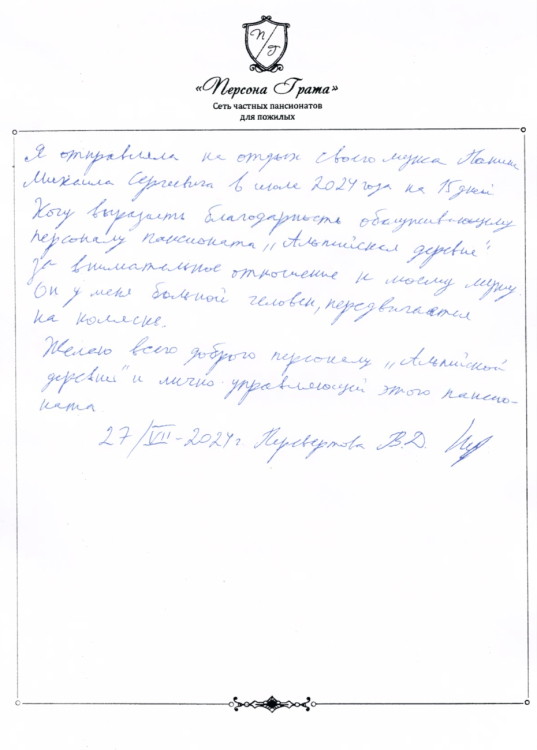 П Г
«Персона Грата»
Сеть частных пансионатов
для пожилых
Я отправляла на отдых своего мужа
Михаила Сергеевича в июле 2024 года на 15 дней
Хочу выразить благодарность обслуживающему
персоналу пансионата „Альпийская деревня"
за внимательное отношение к моему мужу
Он у меня больной человек, передвигается
на коляске.
Желаю всего доброго персоналу „Альпийской
деревни" и лично управляющей этого пансио-
ната
27/VII-2024г Перевертова В.Д.